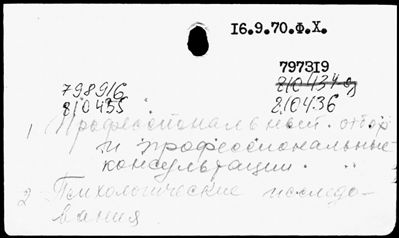 16.9.70.Ф.Х.
797319
798916 810434д
810435 810436
1, Профессиональный отбор
и профессиональные
консультации.
2 Психологические исследо-
вания